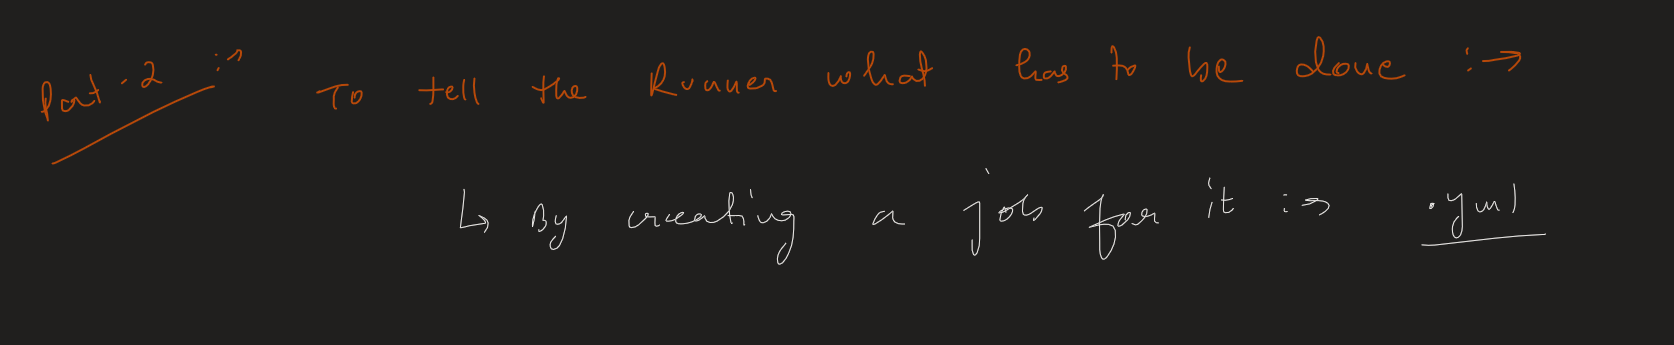 Part-2 :→ To tell the Runner what has to be done :→
↳ By creating a job for it :→ .yml